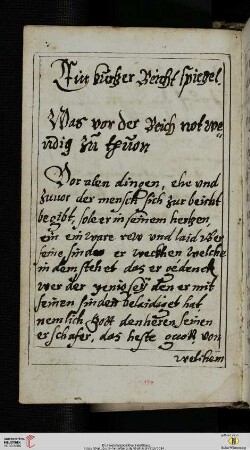 Ein kurtzer Beicht spiegel.
Was vor der Beich not we
ndig zu thuon
Vor alen dingen, ehe und
zuuor der mensch sich zur beicht
begibt, sole er in seinem hertzen
ein ware rew und laid uber
seine sinde er wecken welche
in dem stehet das er gedenck
wer der yenig sey den er mit
seinen sinden belaidiget hat
nemlich Gott den heren seinen
erschafer, das heste guott von
welchem